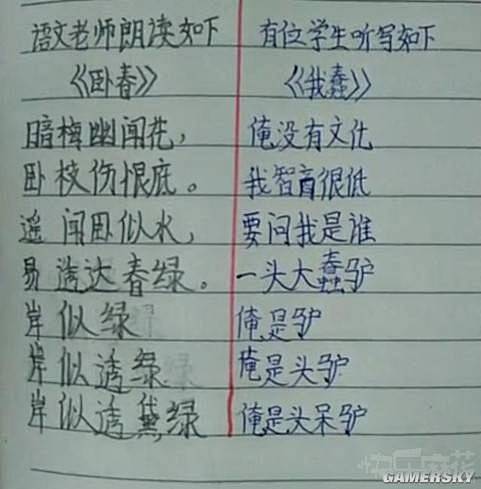 语文老师朗读如下
《卧春》
暗梅幽闻花，
卧枝伤恨底。
遥闻卧似水，
易透达春绿。
岸似绿
岸似透绿
岸似透黛绿
有位学生听写如下
《我蠢》
俺没有文化
我智商很低
要问我是谁
一头大蠢驴
俺是驴
俺是头驴
俺是头呆驴
快乐麻花
GAMERSKY